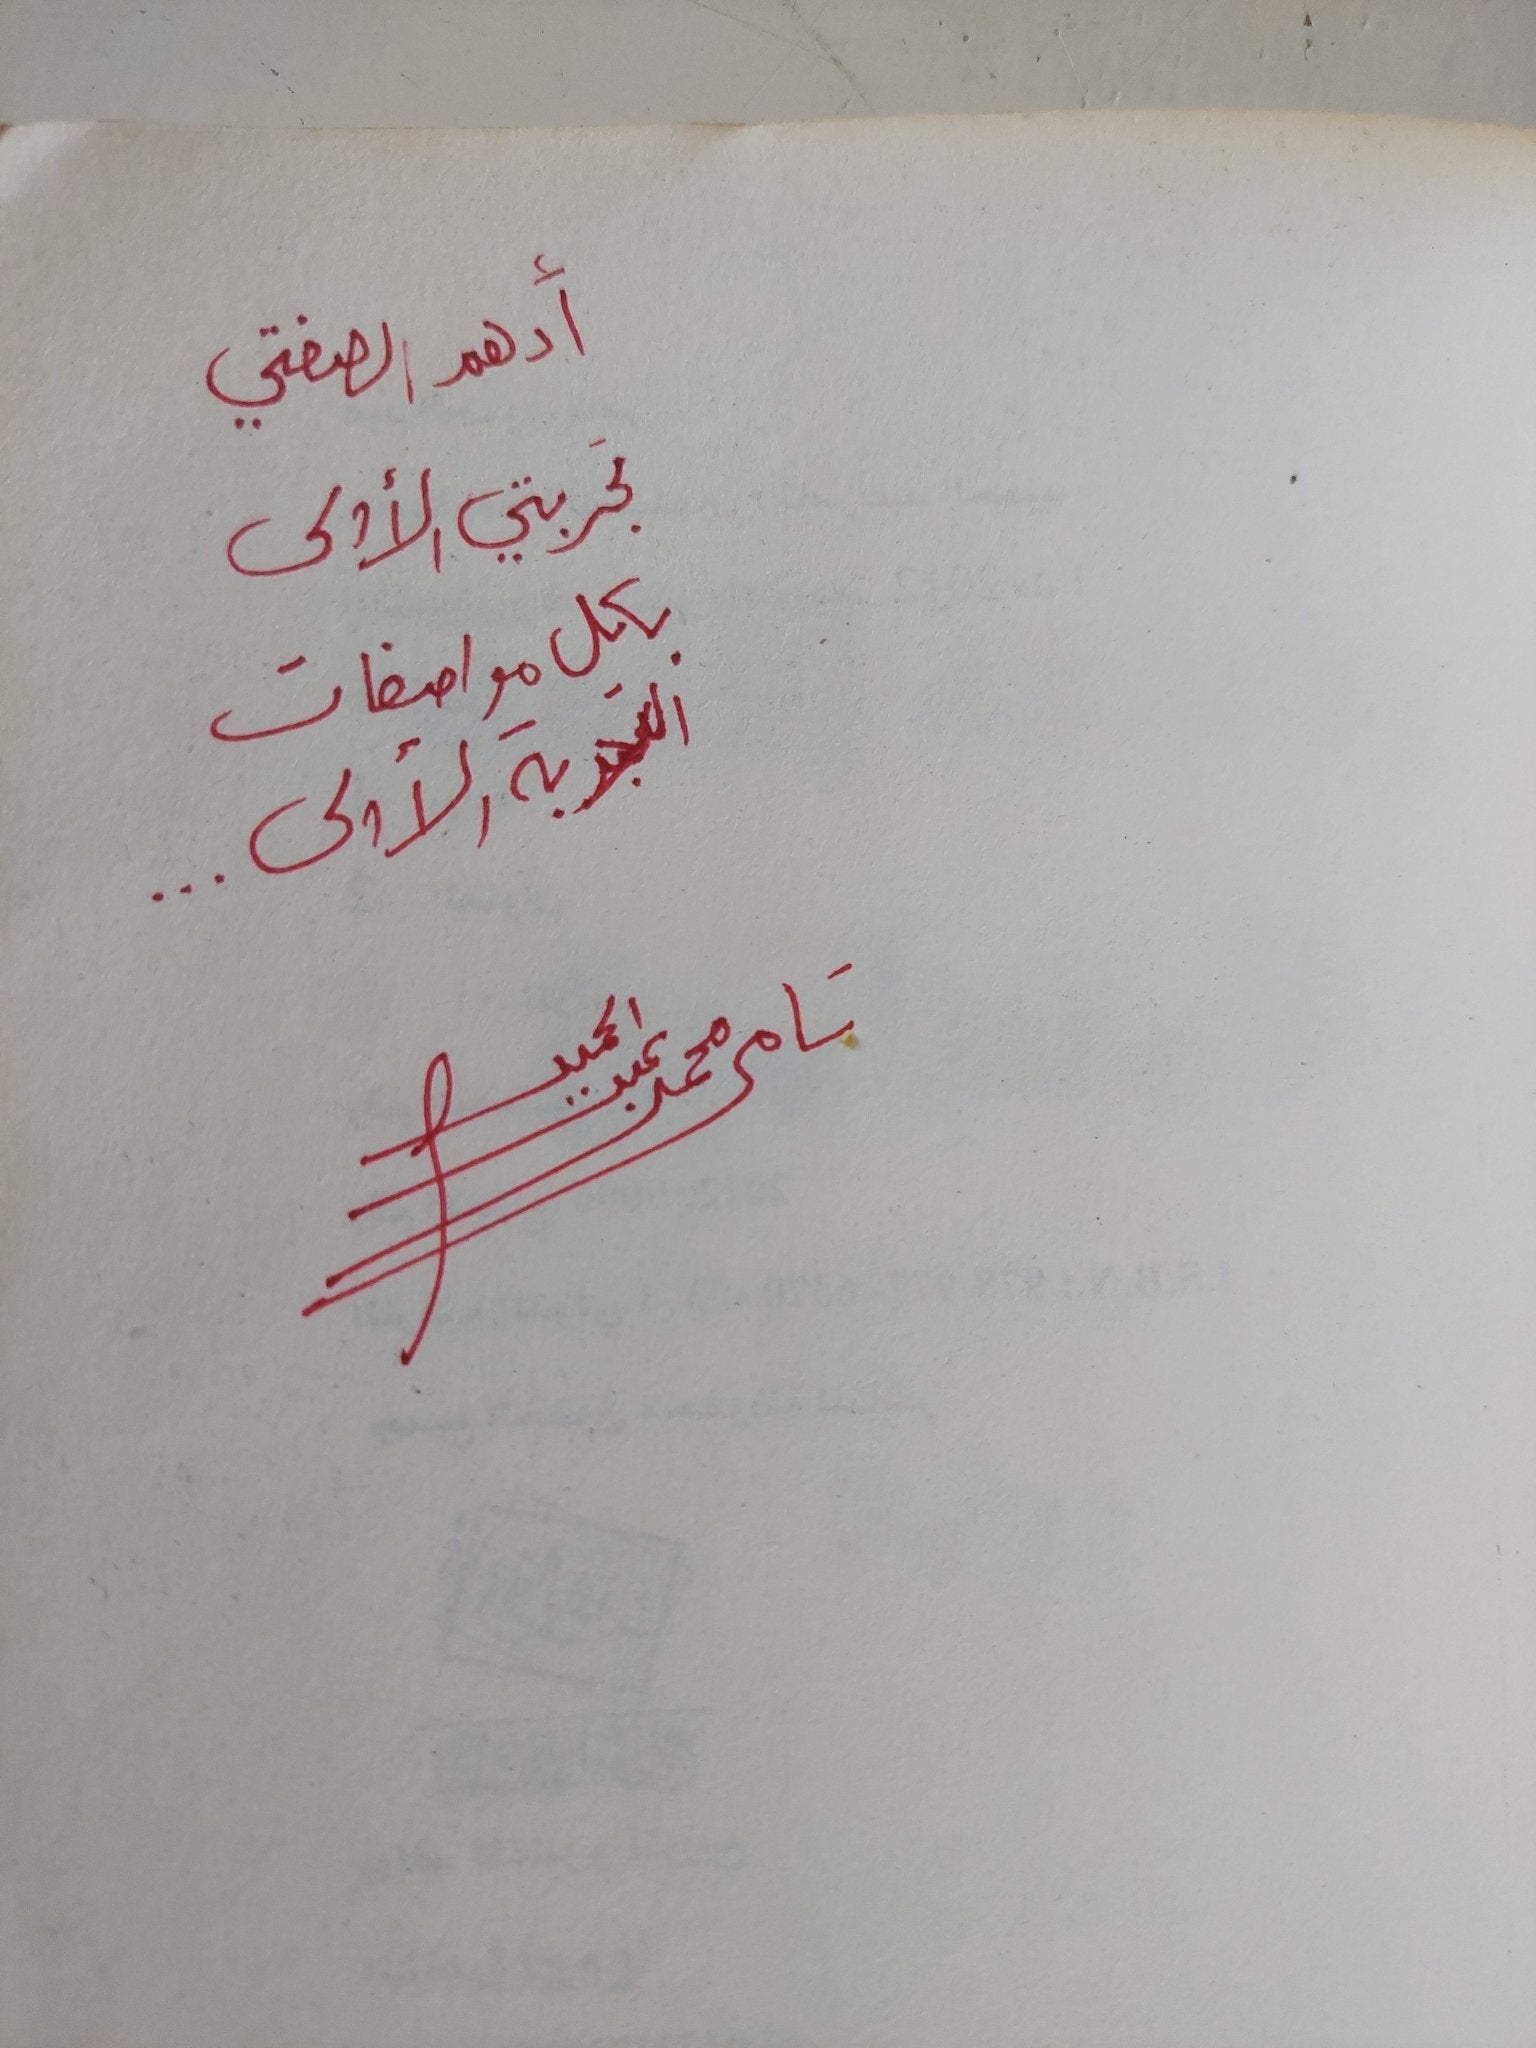 أدهم الصفتي
تجربتي الأولى
بكل مواصفات
التجربة الأولى ...
سامى
محمد
عبد